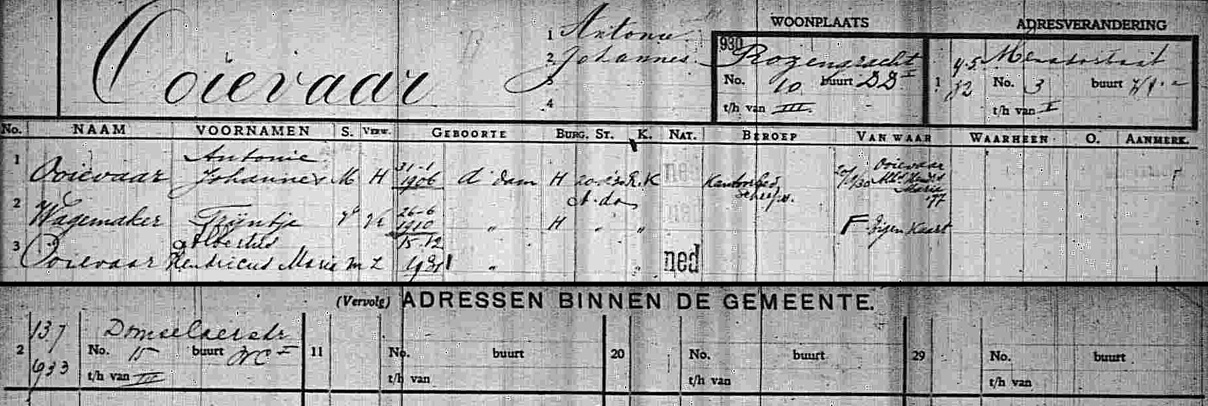 Ooievaar
1 Antonie
2 Johannes
3
4
WOONPLAATS
930 Rozengracht
No. 10 buurt DD I
t/h van III
ADRESVERANDERING
1
No. 3 buurt
t/h van I
No. NAAM VOORNAMEN S. VERW. GEBOORTE BURG. ST. K. NAT. BEROEP VAN WAAR WAARHEEN O. AANMERK.
1 Antonie 31-1 Ooievaar
Ooievaar Johannes M H 1906 A'dam H R.K ned Kantoorbed.
Marie
2 26-6 A'dam
Wagemaker Trijntje V 1910 " H " " Eigen Kaart
3 Albertus 15-12
Ooievaar Hendricus Marie m Z 1931 " " ned
(Vervolg) ADRESSEN BINNEN DE GEMEENTE.
2 13/7 Domselaerstr
No. 15 buurt WC I
933 t/h van III
11 No. buurt
t/h van
20 No. buurt
t/h van
29 No. buurt
t/h van